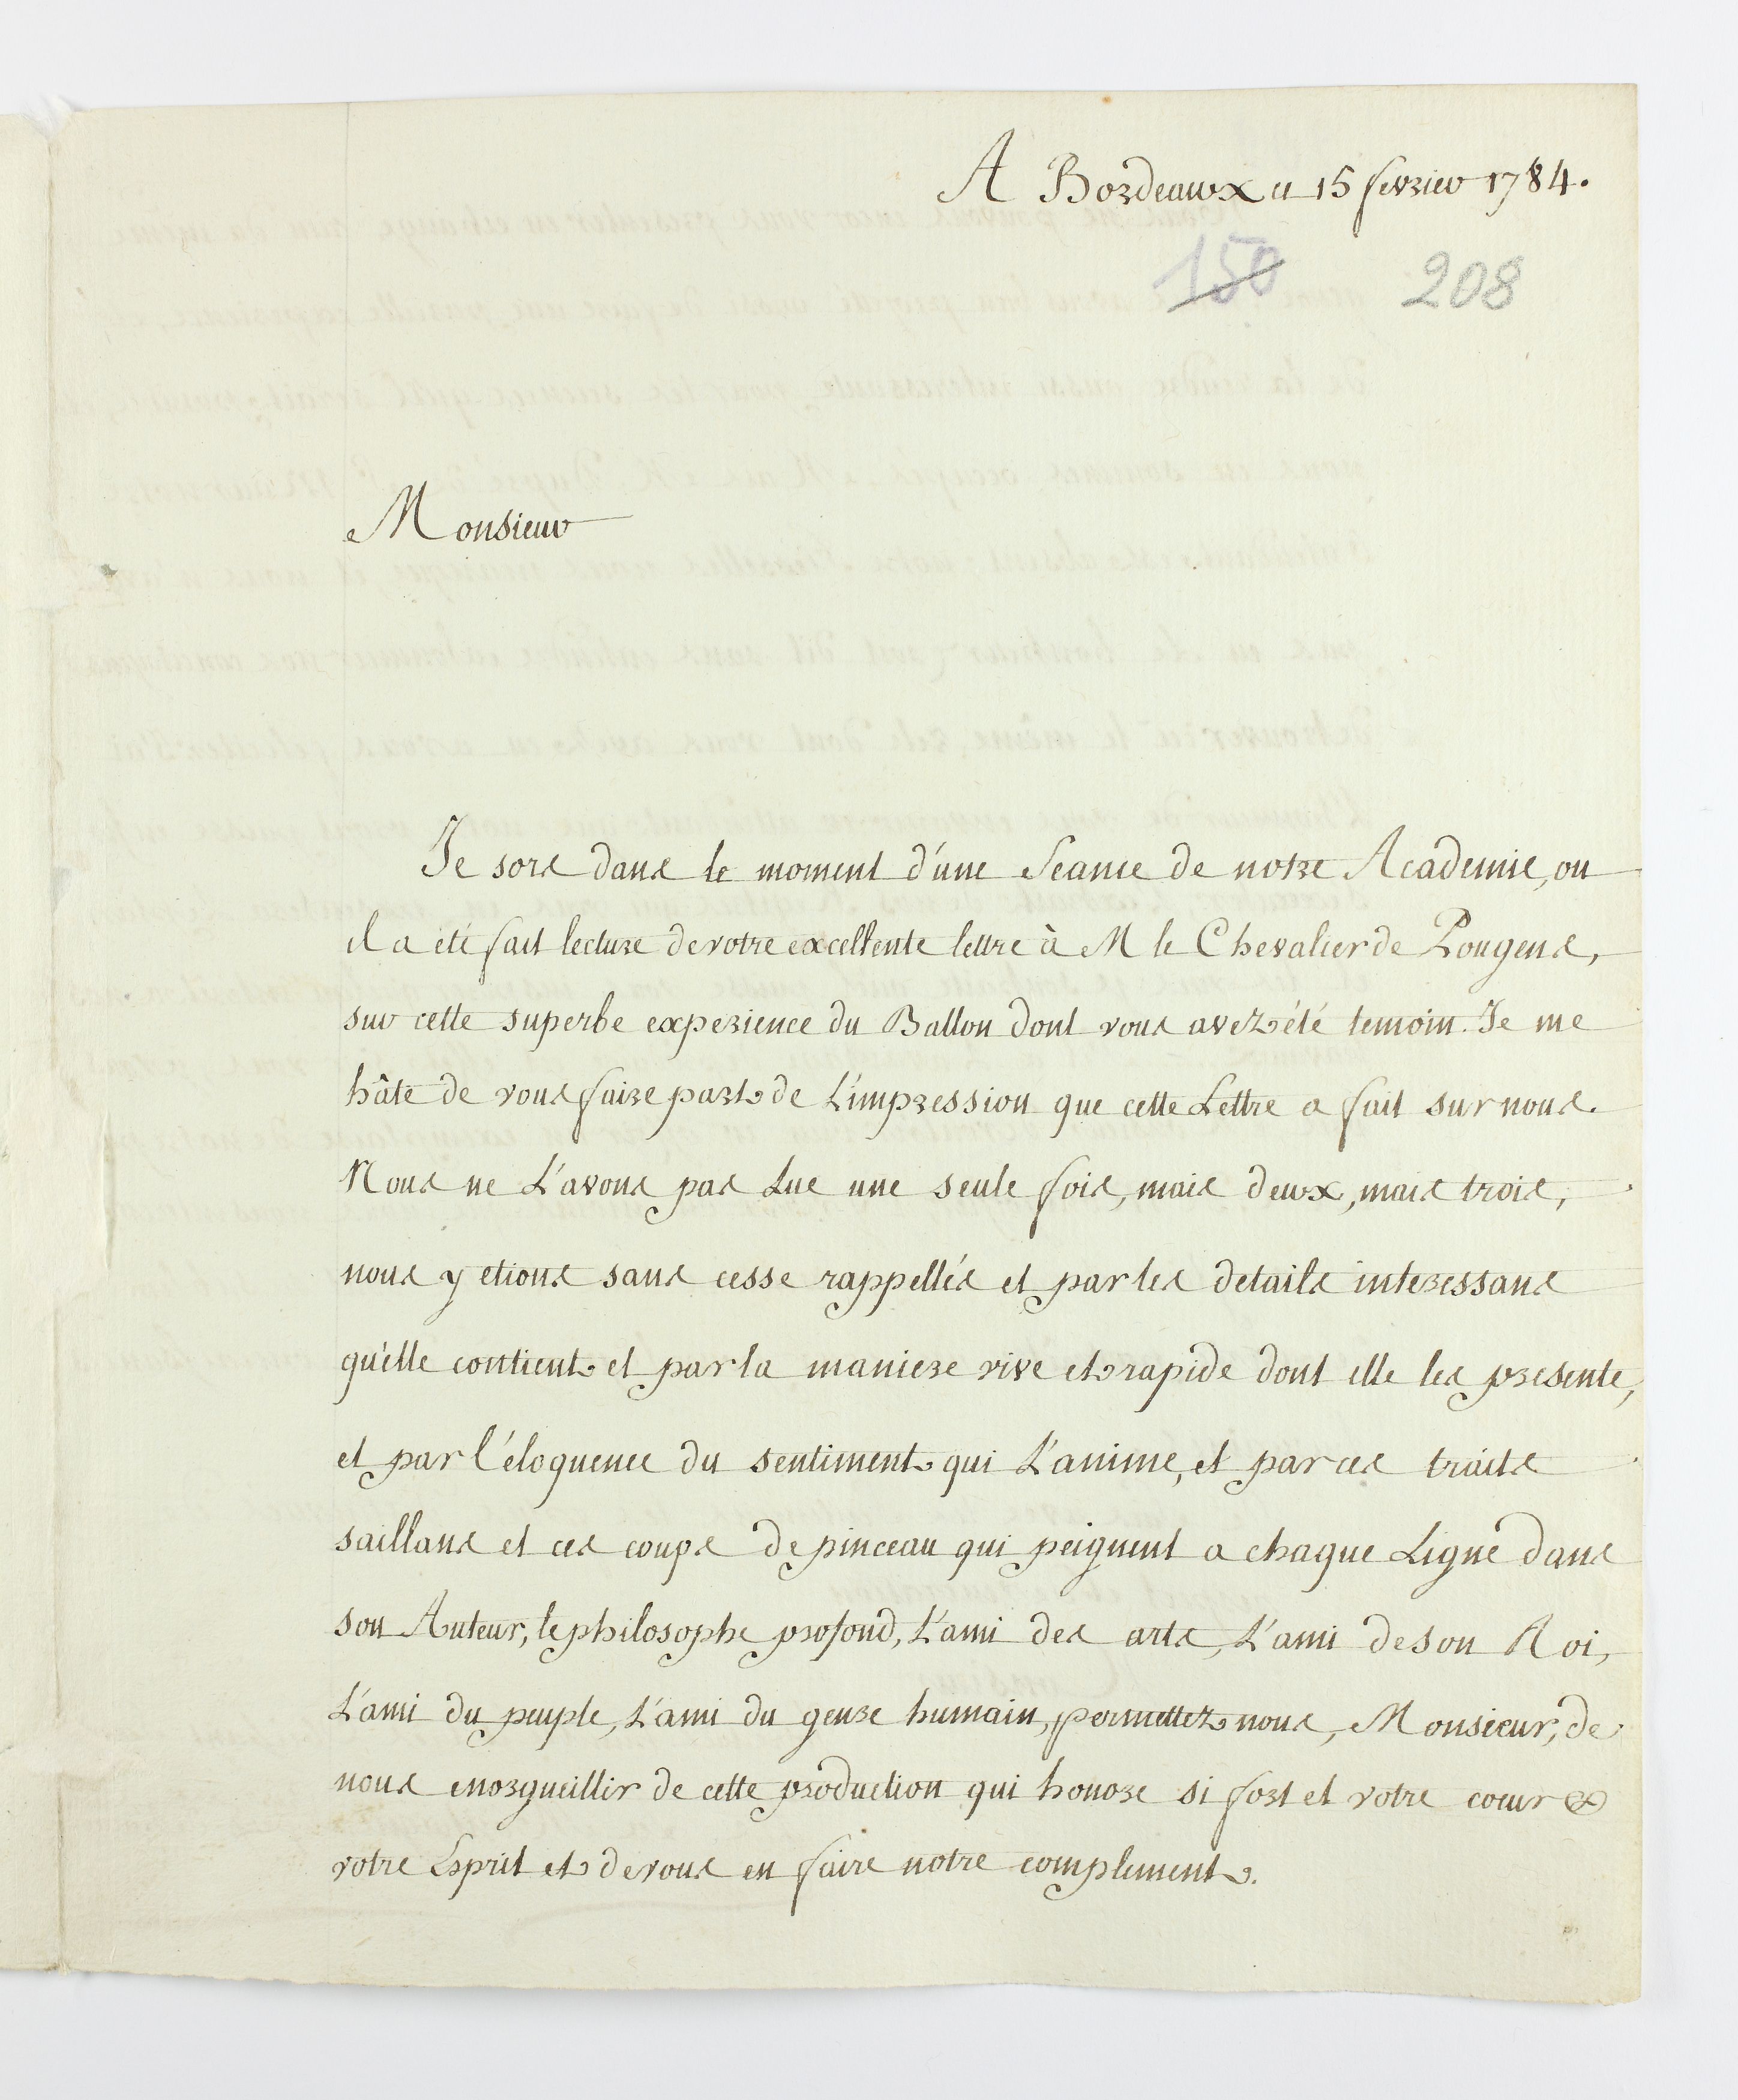 A Bordeaux ce 15 fevrier 1784.
150 208
Monsieur
Je sors dans le moment d'une Seance de notre Academie, ou
il a eté fait lecture de votre excellente lettre à M le Chevalier de Pougens,
sur cette superbe experience du Ballon dont vous avez été temoin. Je me
hâte de vous faire part de L'impression que cette Lettre a fait sur nous.
Nous ne L'avons pas Lue une seule fois, mais deux, mais trois,
nous y etions sans cesse rappellés et par les details interessans
qu'elle contient et par la maniere vive et rapide dont elle les presente,
et par l'éloquence du sentiment qui L'anime, et par ces traits
saillans et ces coups de pinceau qui peignent a chaque Ligne dans
son Auteur, le philosophe profond, L'ami des arts, L'ami de son Roi,
L'ami du peuple, L'ami du genre humain, permettez nous, Monsieur, de
nous enorgueillir de cette production qui honore si fort et votre cœur &
votre Esprit et de vous en faire notre complement.